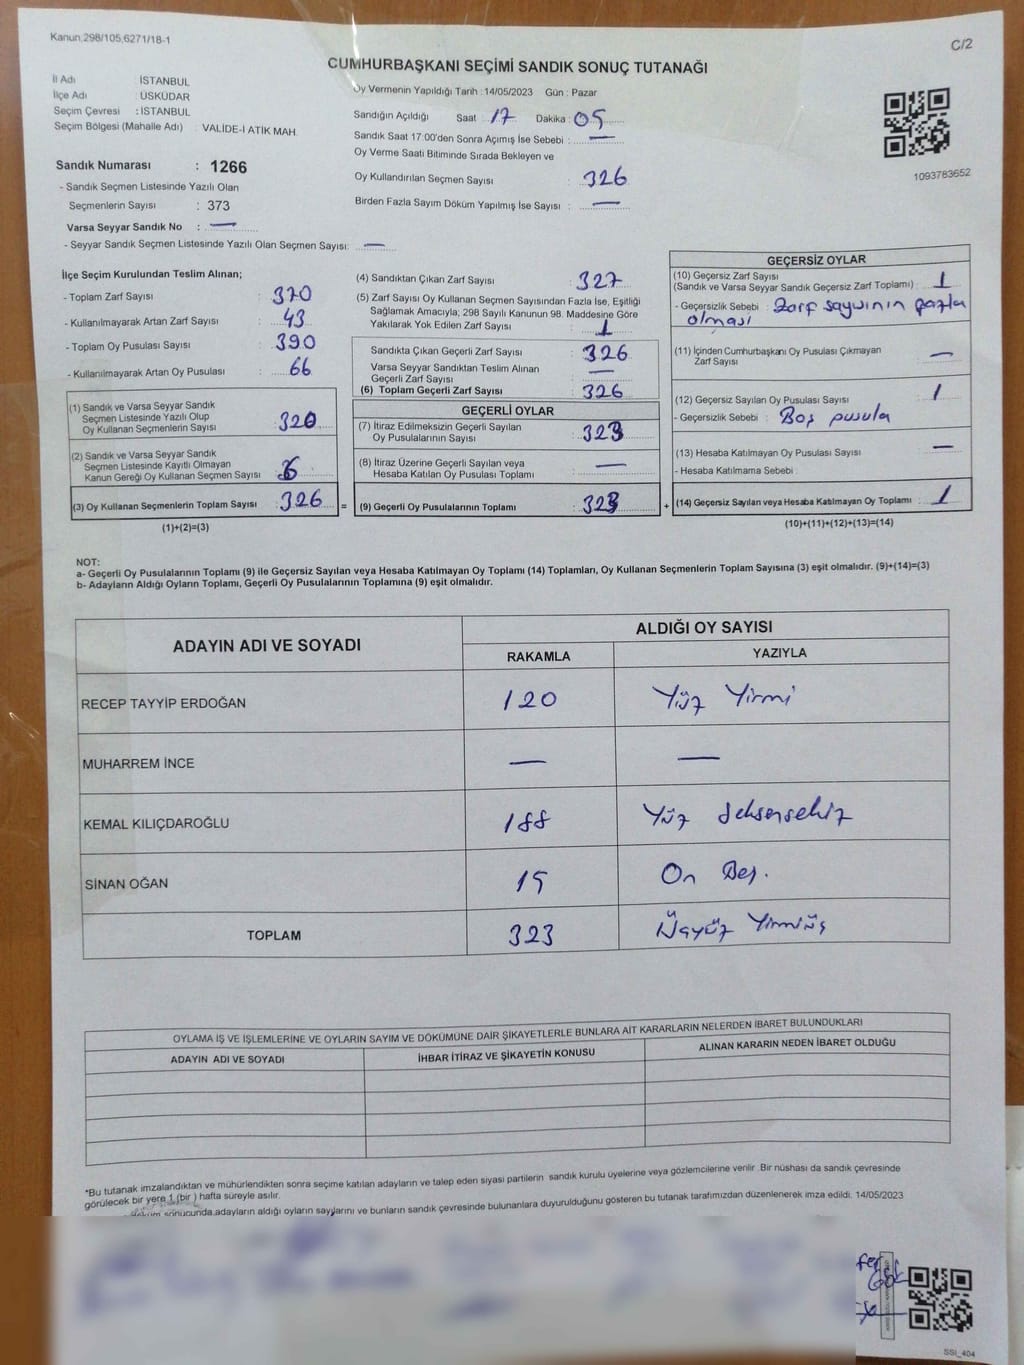 Kanun:298/105,6271/18-1
C/2
CUMHURBAŞKANI SEÇİMİ SANDIK SONUÇ TUTANAĞI
İl Adı : İSTANBUL
İlçe Adı : ÜSKÜDAR
Seçim Çevresi : İSTANBUL
Seçim Bölgesi (Mahalle Adı) : VALİDE-İ ATİK MAH.
Sandık Numarası : 1266
- Sandık Seçmen Listesinde Yazılı Olan
Seçmenlerin Sayısı : 373
Varsa Seyyar Sandık No : —
- Seyyar Sandık Seçmen Listesinde Yazılı Olan Seçmen Sayısı: —
Oy Vermenin Yapıldığı Tarih : 14/05/2023 Gün : Pazar
Sandığın Açıldığı Saat 17 Dakika : 05
Sandık Saat 17:00'den Sonra Açımış İse Sebebi : —
Oy Verme Saati Bitiminde Sırada Bekleyen ve
Oy Kullandırılan Seçmen Sayısı : 326
Birden Fazla Sayım Döküm Yapılmış İse Sayısı : —
1093783652
İlçe Seçim Kurulundan Teslim Alınan;
- Toplam Zarf Sayısı : 370
- Kullanılmayarak Artan Zarf Sayısı : 43
- Toplam Oy Pusulası Sayısı : 390
- Kullanılmayarak Artan Oy Pusulası : 66
(1) Sandık ve Varsa Seyyar Sandık
Seçmen Listesinde Yazılı Olup
Oy Kullanan Seçmenlerin Sayısı : 320
(2) Sandık ve Varsa Seyyar Sandık
Seçmen Listesinde Kayıtlı Olmayan
Kanun Gereği Oy Kullanan Seçmen Sayısı : 6
(3) Oy Kullanan Seçmenlerin Toplam Sayısı : 326 =
(1)+(2)=(3)
(4) Sandıktan Çıkan Zarf Sayısı : 327
(5) Zarf Sayısı Oy Kullanan Seçmen Sayısından Fazla İse, Eşitliği
Sağlamak Amacıyla; 298 Sayılı Kanunun 98. Maddesine Göre
Yakılarak Yok Edilen Zarf Sayısı : 1
Sandıkta Çıkan Geçerli Zarf Sayısı : 326
Varsa Seyyar Sandıktan Teslim Alınan
Geçerli Zarf Sayısı : —
(6) Toplam Geçerli Zarf Sayısı : 326
GEÇERLİ OYLAR
(7) İtiraz Edilmeksizin Geçerli Sayılan
Oy Pusulalarının Sayısı : 323
(8) İtiraz Üzerine Geçerli Sayılan veya
Hesaba Katılan Oy Pusulası Toplamı : —
(9) Geçerli Oy Pusulalarının Toplamı : 323 +
GEÇERSİZ OYLAR
(10) Geçersiz Zarf Sayısı
(Sandık ve Varsa Seyyar Sandık Geçersiz Zarf Toplamı) : 1
- Geçersizlik Sebebi : Zarf sayısının fazla
olması
(11) İçinden Cumhurbaşkanı Oy Pusulası Çıkmayan
Zarf Sayısı : —
(12) Geçersiz Sayılan Oy Pusulası Sayısı : 1
- Geçersizlik Sebebi : Boş pusula
(13) Hesaba Katılmayan Oy Pusulası Sayısı : —
- Hesaba Katılmama Sebebi :
(14) Geçersiz Sayılan veya Hesaba Katılmayan Oy Toplamı : 1
(10)+(11)+(12)+(13)=(14)
NOT:
a- Geçerli Oy Pusulalarının Toplamı (9) ile Geçersiz Sayılan veya Hesaba Katılmayan Oy Toplamı (14) Toplamları, Oy Kullanan Seçmenlerin Toplam Sayısına (3) eşit olmalıdır. (9)+(14)=(3)
b- Adayların Aldığı Oyların Toplamı, Geçerli Oy Pusulalarının Toplamına (9) eşit olmalıdır.
ADAYIN ADI VE SOYADI ALDIĞI OY SAYISI
RAKAMLA YAZIYLA
RECEP TAYYİP ERDOĞAN 120 Yüz Yirmi
MUHARREM İNCE — —
KEMAL KILIÇDAROĞLU 188 Yüz Seksensekiz
SİNAN OĞAN 15 On Beş.
TOPLAM 323 Üçyüz Yirmiüç
OYLAMA İŞ VE İŞLEMLERİNE VE OYLARIN SAYIM VE DÖKÜMÜNE DAİR ŞİKAYETLERLE BUNLARA AİT KARARLARIN NELERDEN İBARET BULUNDUKLARI
ADAYIN ADI VE SOYADI İHBAR İTİRAZ VE ŞİKAYETİN KONUSU ALINAN KARARIN NEDEN İBARET OLDUĞU
*Bu tutanak imzalandıktan ve mühürlendikten sonra seçime katılan adayların ve talep eden siyasi partilerin sandık kurulu üyelerine veya gözlemcilerine verilir .Bir nüshası da sandık çevresinde
görülecek bir yere 1 (bir ) hafta süreyle asılır.
sonucunda,adayların aldığı oyların sayılarını ve bunların sandık çevresinde bulunanlara duyurulduğunu gösteren bu tutanak tarafımızdan düzenlenerek imza edildi. 14/05/2023
SSI_404